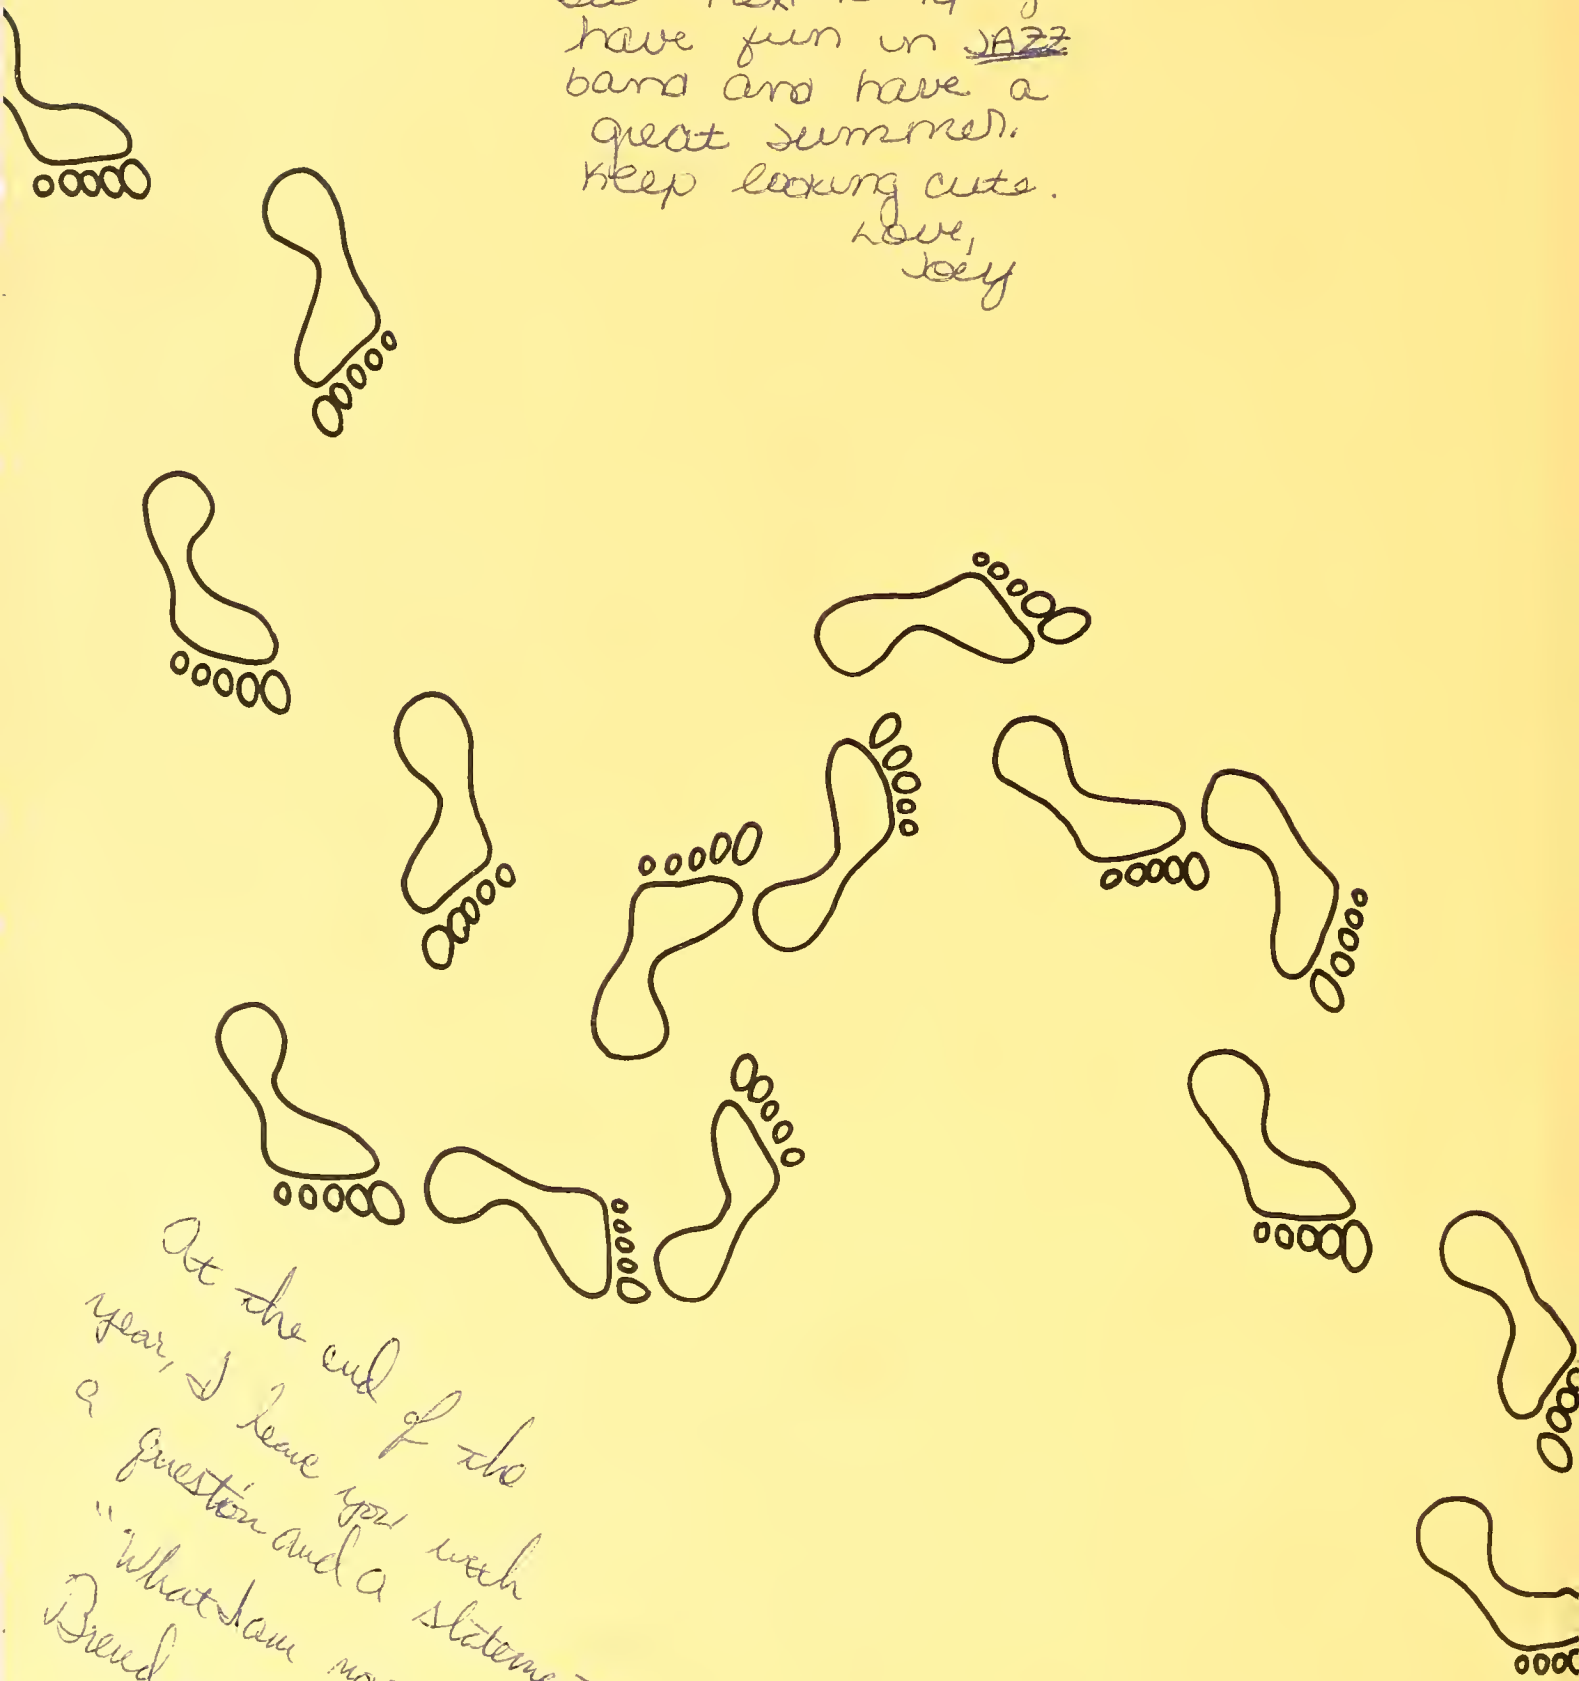 have fun in JAZZ
band and have a
great summer.
Keep looking cute.
Love,
Joey
At the end of the
year, I leave you with
a question and a
"What I am